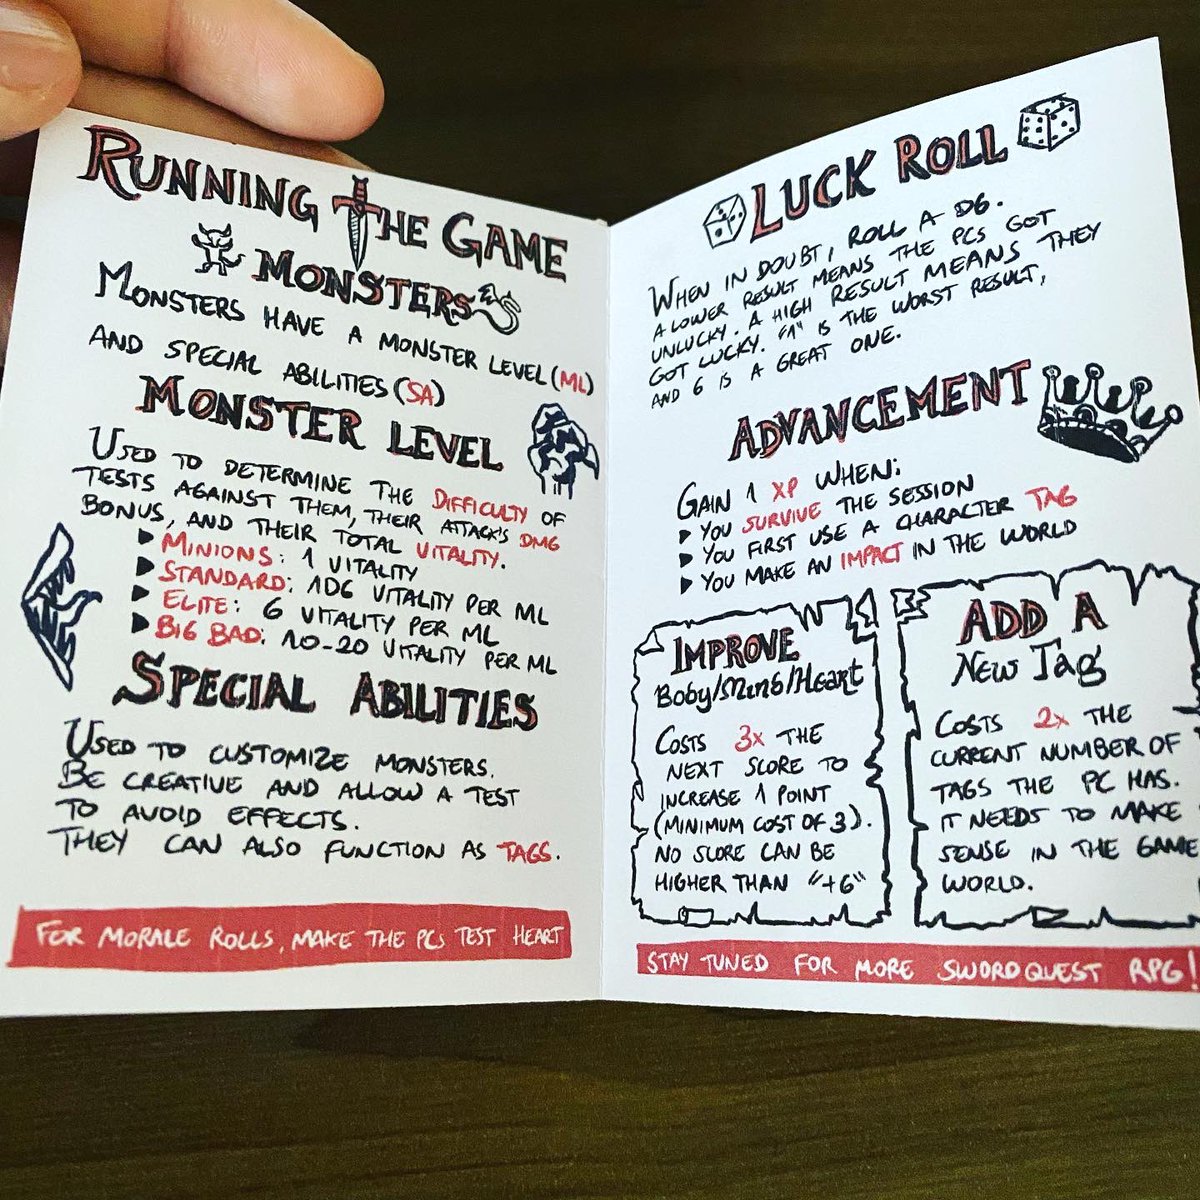 RUNNING THE GAME
MONSTERS
MONSTERS HAVE A MONSTER LEVEL (ML)
AND SPECIAL ABILITIES (SA)
MONSTER LEVEL
USED TO DETERMINE THE DIFFICULTY OF
TESTS AGAINST THEM, THEIR ATTACK'S DMG
BONUS, AND THEIR TOTAL VITALITY.
▶ MINIONS: 1 VITALITY
▶ STANDARD: 1D6 VITALITY PER ML
▶ ELITE: 6 VITALITY PER ML
▶ BIG BAD: 10-20 VITALITY PER ML
SPECIAL ABILITIES
USED TO CUSTOMIZE MONSTERS.
BE CREATIVE AND ALLOW A TEST
TO AVOID EFFECTS.
THEY CAN ALSO FUNCTION AS TAGS.
FOR MORALE ROLLS, MAKE THE PCs TEST HEART
LUCK ROLL
WHEN IN DOUBT, ROLL A D6.
A LOWER RESULT MEANS THE PCs GOT
UNLUCKY. A HIGH RESULT MEANS THEY
GOT LUCKY. "1" IS THE WORST RESULT,
AND 6 IS A GREAT ONE.
ADVANCEMENT
GAIN 1 XP WHEN:
▶ YOU SURVIVE THE SESSION
▶ YOU FIRST USE A CHARACTER TAG
▶ YOU MAKE AN IMPACT IN THE WORLD
IMPROVE
Body/Mind/Heart
COSTS 3x THE
NEXT SCORE TO
INCREASE 1 POINT
(MINIMUM COST OF 3).
NO SCORE CAN BE
HIGHER THAN "+6"
ADD A
New Tag
COSTS 2x THE
CURRENT NUMBER OF
TAGS THE PC HAS.
IT NEEDS TO MAKE
SENSE IN THE GAME
WORLD.
STAY TUNED FOR MORE SWORDQUEST RPG!